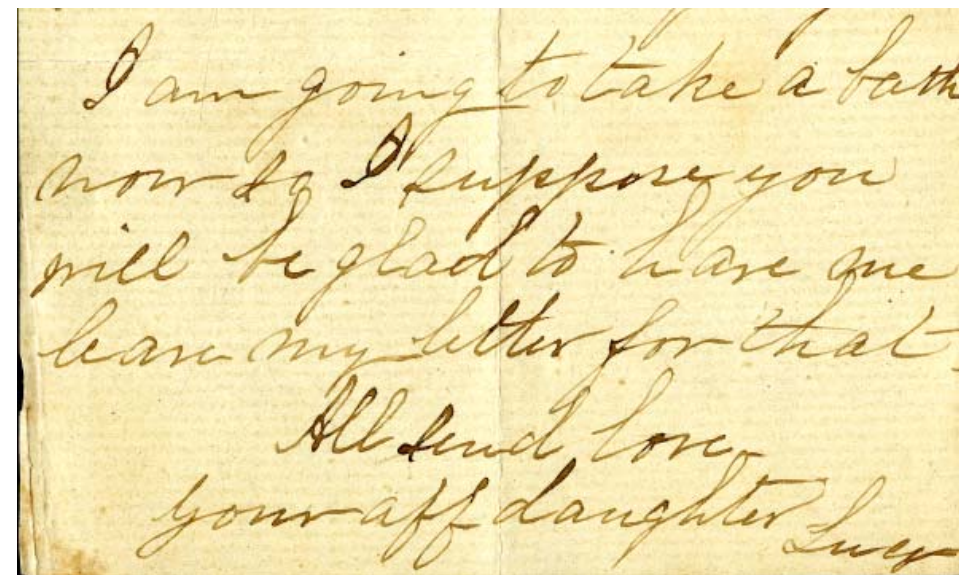 I am going to take a bath
now so I suppose you
will be glad to have me
leave my letter for that.
All send love
your aff daughter Lucy